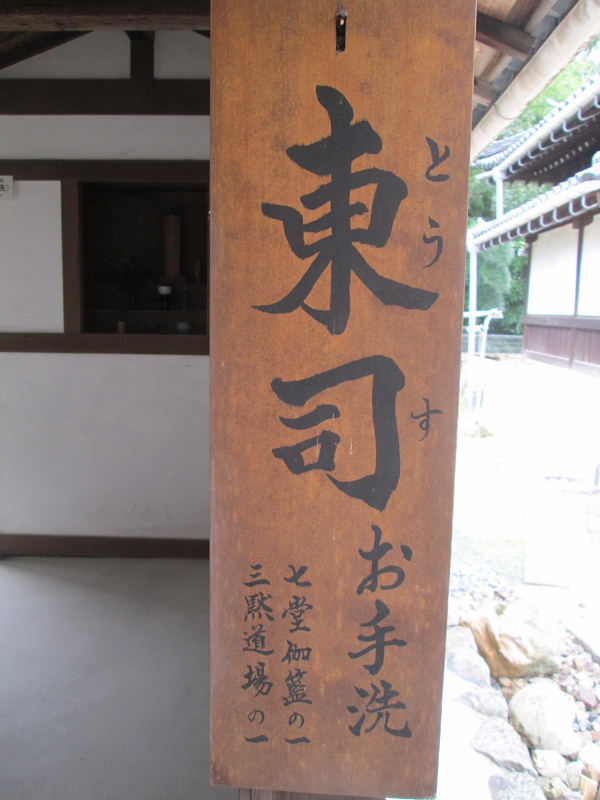 東司
とうす
お手洗
七堂伽籃の一
三黙道場の一